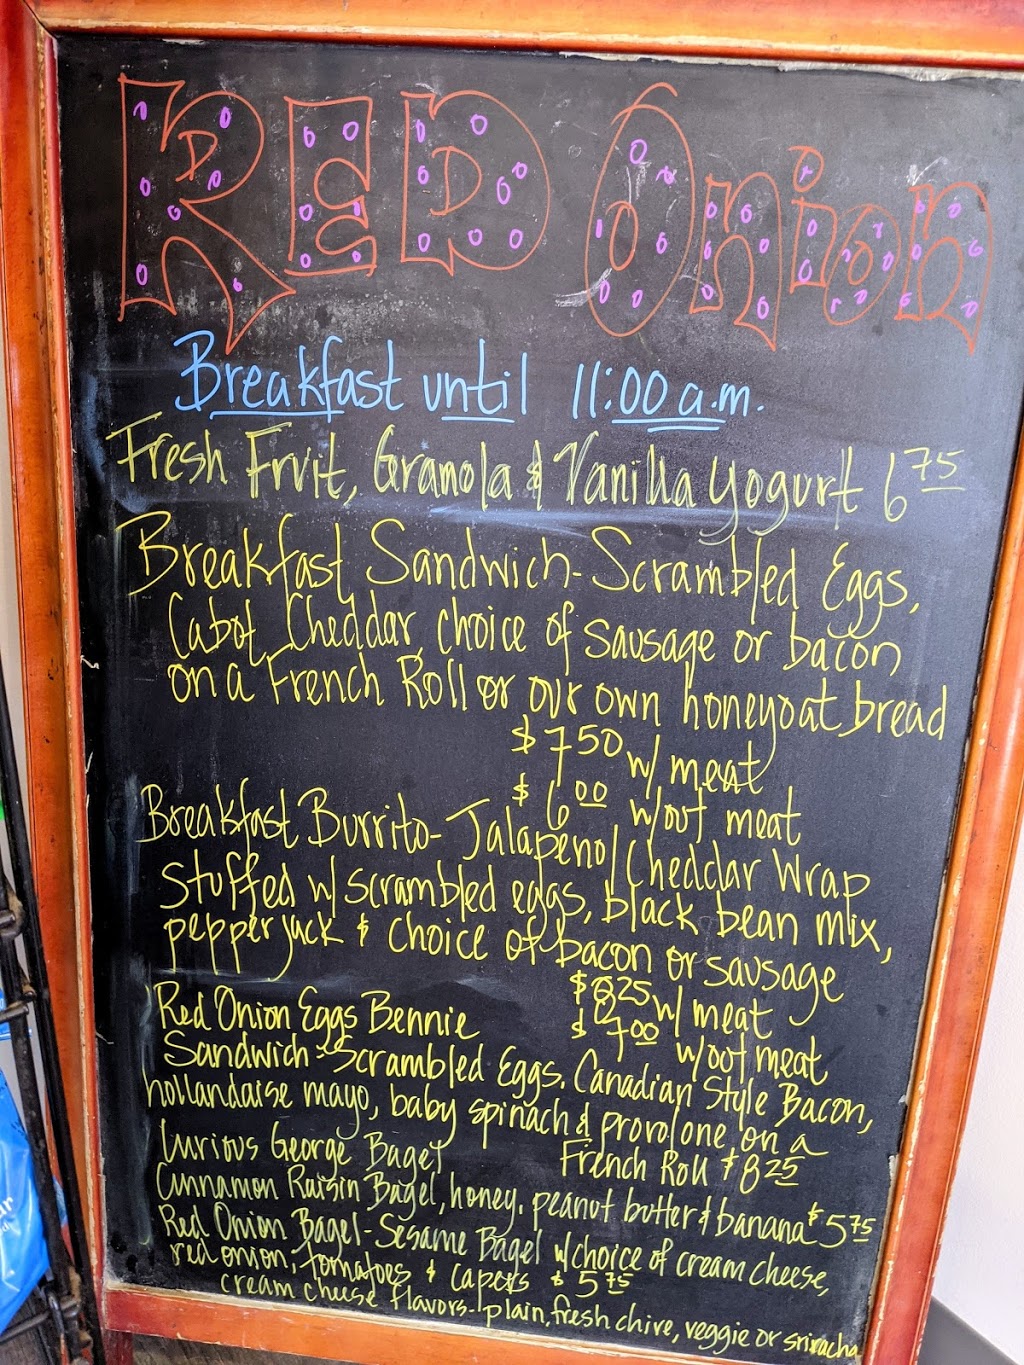 RED Onion
Breakfast until 11:00 a.m.
Fresh Fruit, Granola & Vanilla Yogurt 6 75
Breakfast Sandwich - Scrambled Eggs,
Cabot Cheddar, choice of sausage or bacon
on a French Roll or our own honeyoat bread
$7 50 w/ meat
$6 00 w/out meat
Breakfast Burrito - Jalapeno/Cheddar Wrap
Stuffed w/ scrambled eggs, black bean mix,
pepper jack & choice of bacon or sausage
$8 25 w/ meat
Red Onion Eggs Bennie $7 00 w/out meat
Sandwich - Scrambled Eggs, Canadian Style Bacon,
hollandaise mayo, baby spinach & provolone on a
Curious George Bagel French Roll $8 25
Cinnamon Raisin Bagel, honey, peanut butter & banana $5 75
Red Onion Bagel - Sesame Bagel w/ choice of cream cheese,
red onion, tomatoes & capers $5 75
cream cheese flavors - plain, fresh chive, veggie or sriracha